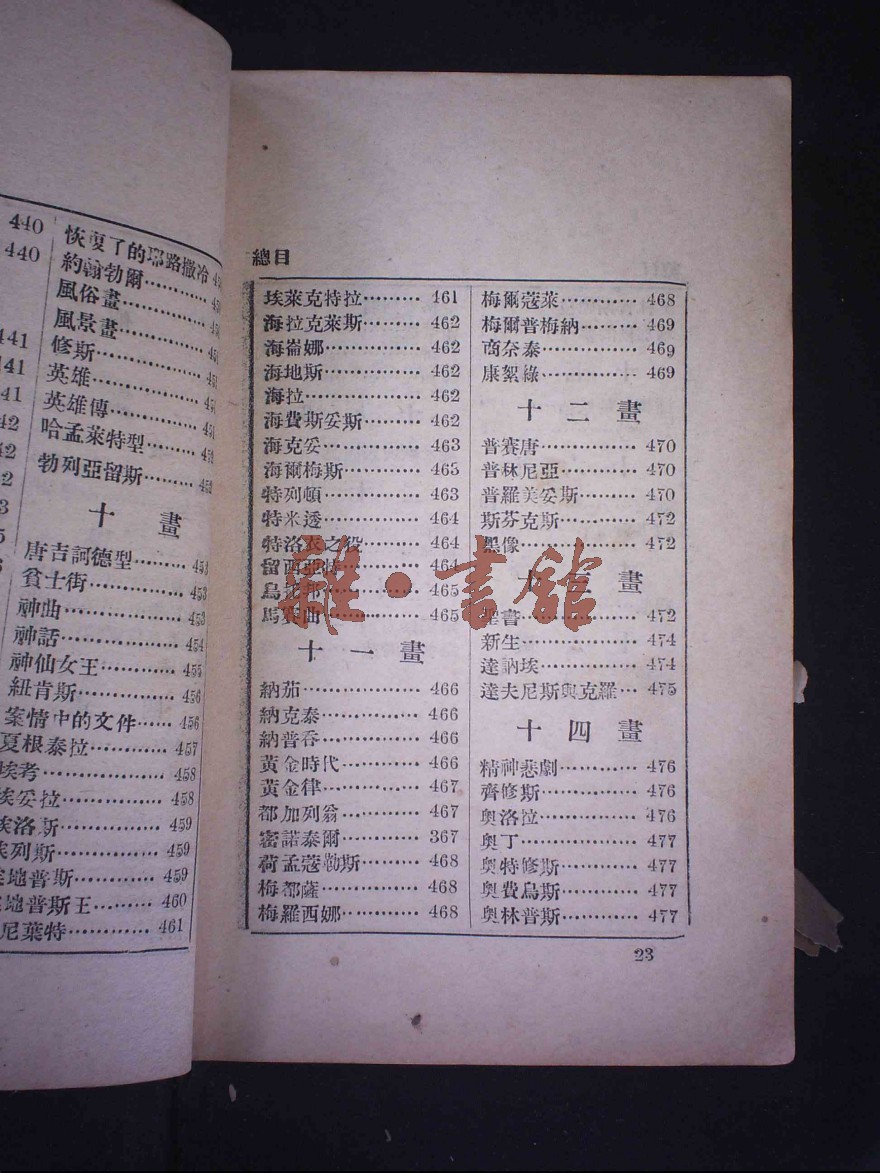 440
440
441
441
恢復了的耶路撒冷
約翰勃爾…………
風俗畫……………
風景畫……………
修斯………………
英雄………………
英雄傳……………
哈孟萊特型………
勃列亞留斯………
十 畫
唐吉訶德型……… 453
貧士街…………… 453
神曲……………… 453
神話……………… 454
神仙女王………… 455
紐肯斯…………… 456
案情中的文件…… 456
夏根泰拉………… 457
埃考……………… 458
埃妥拉…………… 458
埃洛斯…………… 459
埃列斯…………… 459
埃地普斯………… 459
埃地普斯王……… 460
尼葉特…………… 461
總目
埃萊克特拉……… 461
海拉克萊斯……… 462
海崙娜…………… 462
海地斯…………… 462
海拉……………… 462
海費斯妥斯……… 462
海克妥…………… 463
海爾梅斯………… 465
特列頓…………… 463
特米透…………… 464
特洛衣之役……… 464
留西亞特………… 464
烏托邦…………… 465
馬賽曲…………… 465
十 一 畫
納茄……………… 466
納克泰…………… 466
納普吞…………… 466
黃金時代………… 466
黃金律…………… 467
都加列翁………… 467
密諾泰爾………… 367
荷孟蔻勒斯……… 468
梅都薩…………… 468
梅羅西娜………… 468
梅爾蔻萊………… 468
梅爾普梅納……… 469
商奈泰…………… 469
康絮綠…………… 469
十 二 畫
普賽唐…………… 470
普林尼亞………… 470
普羅美妥斯……… 470
斯芬克斯………… 472
黑像……………… 472
十 三 畫
聖書……………… 472
新生……………… 474
達訥埃…………… 474
達夫尼斯與克羅… 475
十 四 畫
精神悲劇………… 476
齊修斯…………… 476
奧洛拉…………… 476
奧丁……………… 477
奧特修斯………… 477
奧費烏斯………… 477
奧林普斯………… 477
23
雜·書館